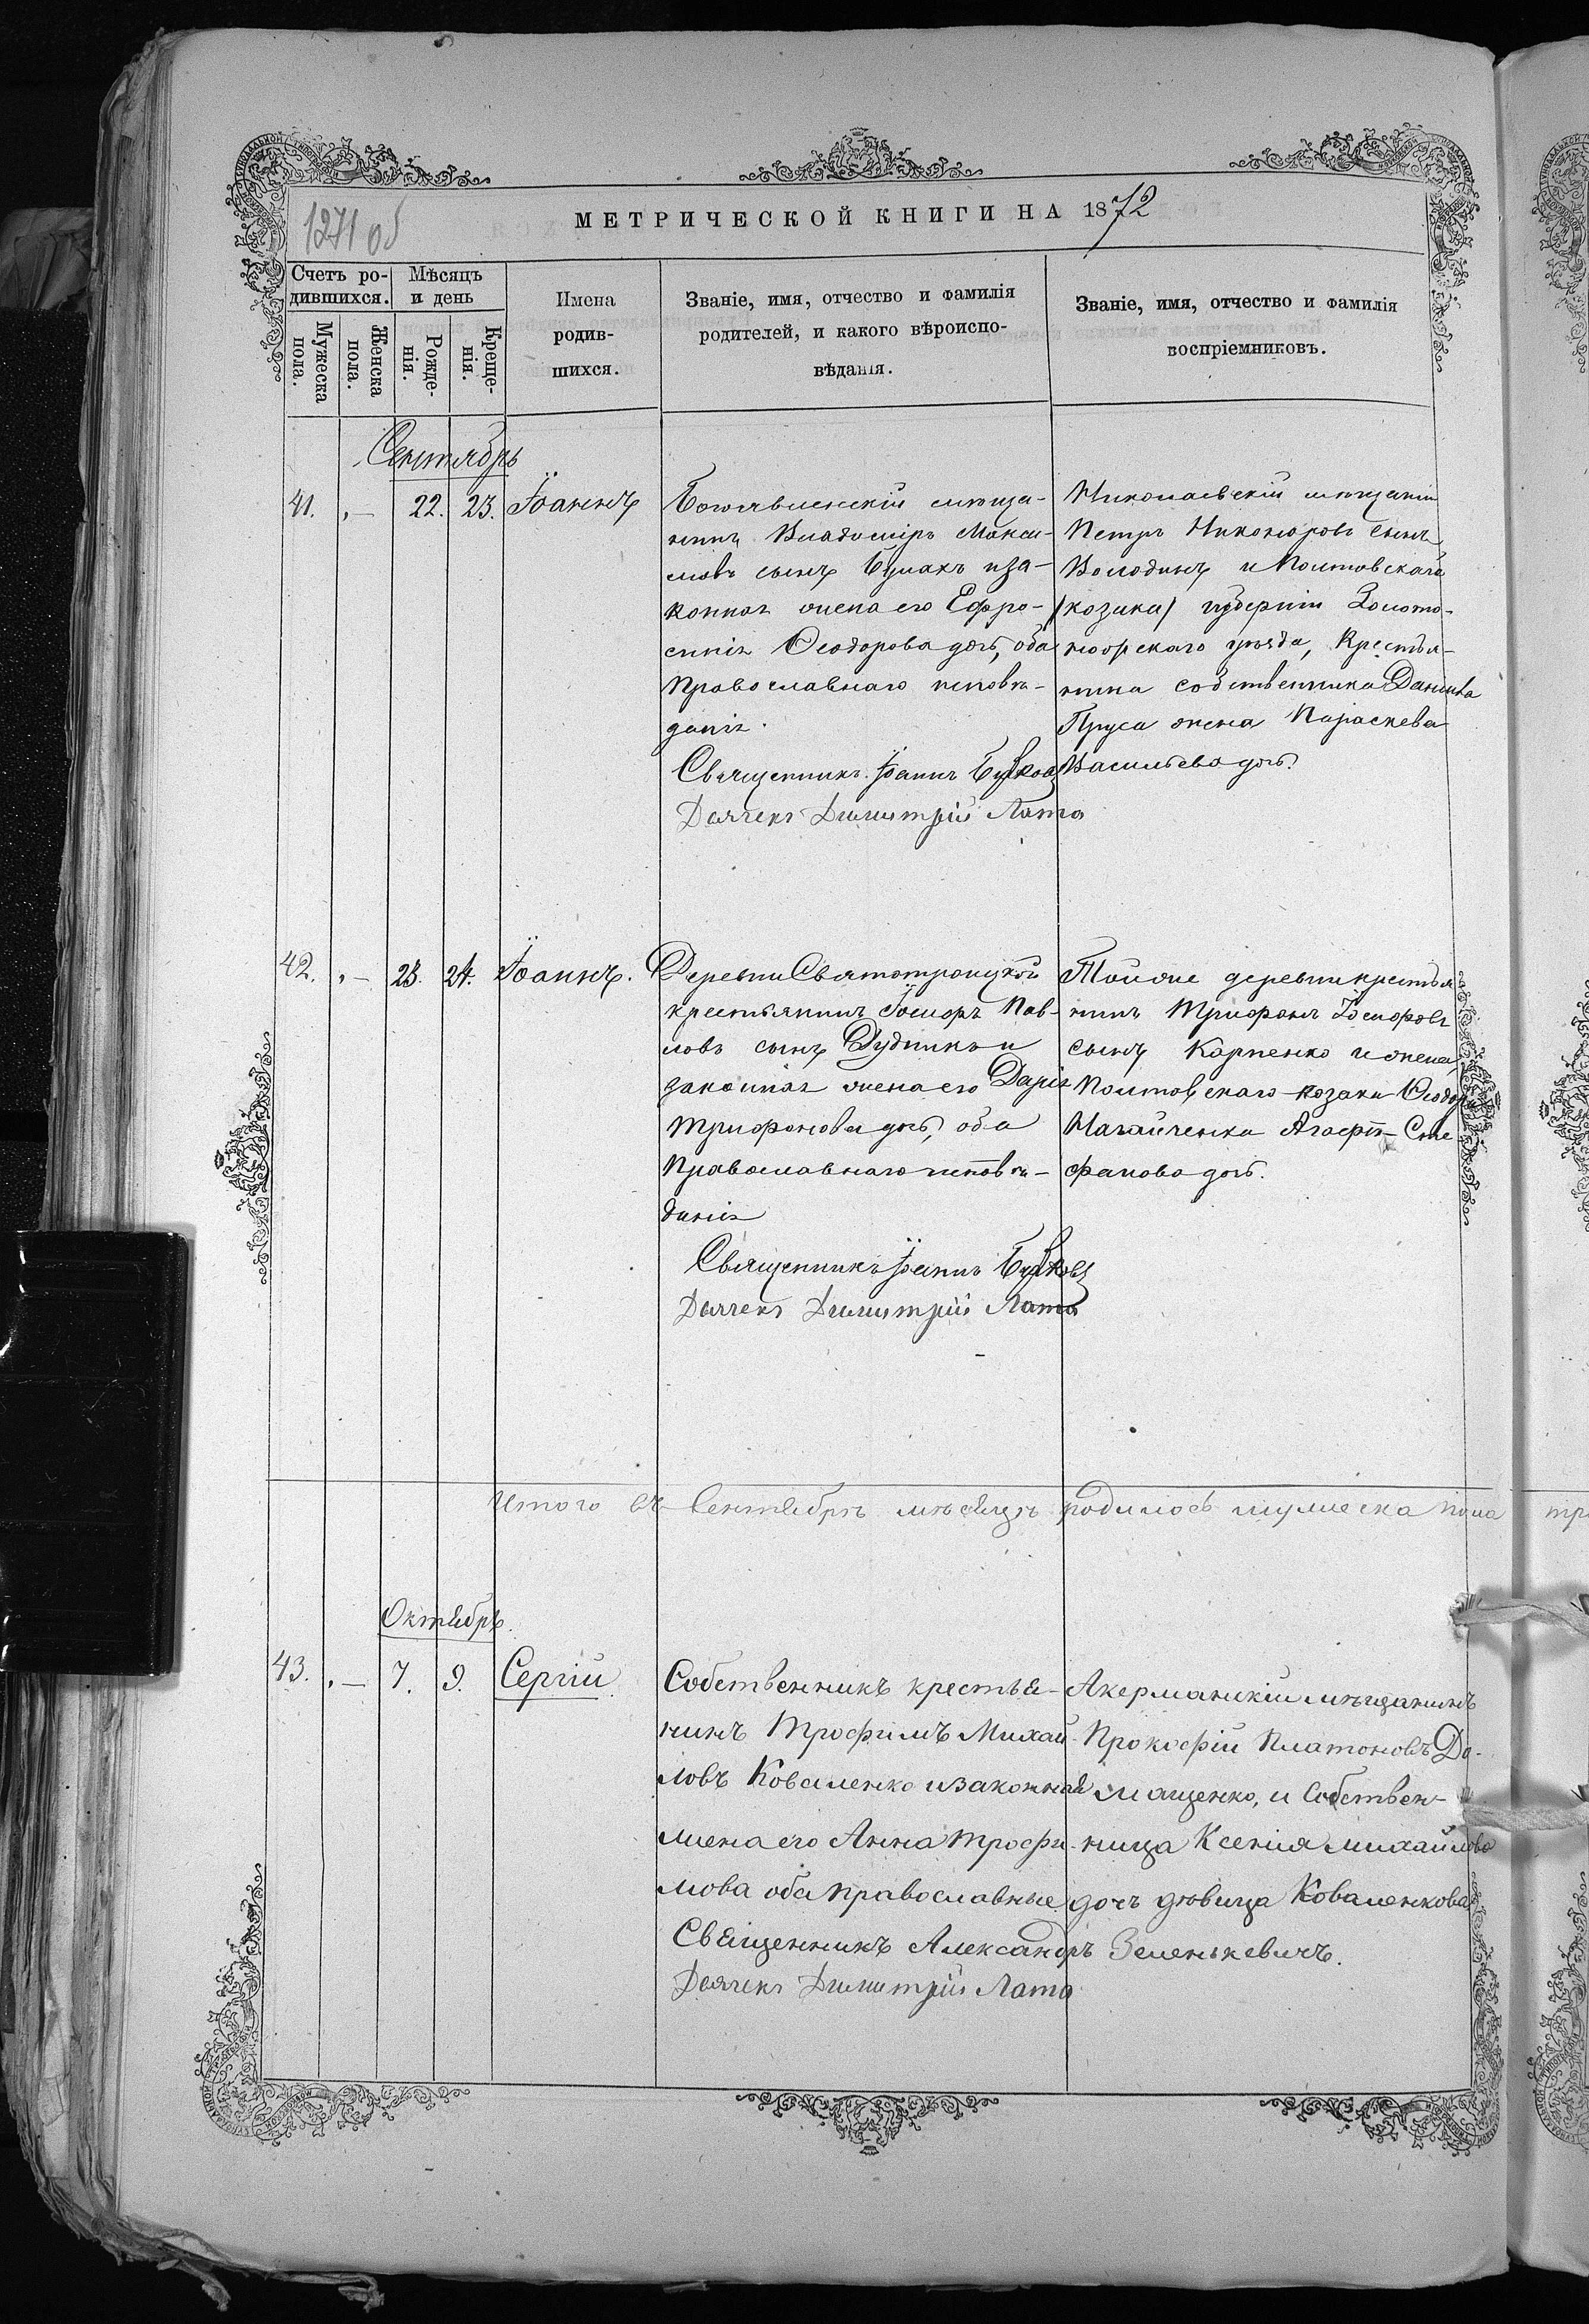 1271 об
МЕТРИЧЕСКОЙ КНИГИ НА 1872
Счетъ ро-
дившихся.
Мѣсяцъ
и день
Мужеска
пола.
Женска
пола.
Рожде-
нія.
Креще-
нія.
Имена
родив-
шихся.
Званіе, имя, отчество и фамилія
родителей, и какого вѣроиспо-
вѣданія.
Званіе, имя, отчество и фамилія
воспріемниковъ.
Сентябрь
41. „— 22. 23. Іоаннъ
Богоявленскій мѣща-
нинъ Владиміръ Макси-
мовъ сынъ Бумахъ иза-
конная жена его Ефро-
синія Ѳеодорова дочь, оба
Православнаго исповѣ-
данія.
Священникъ Іоаннъ
Дьячекъ Димитрій Лата
Николаевскій мѣщанин
Петръ Никоноровъ сынъ
Володинъ и Полтовскаго
(козака) губерніи Золото-
ношскаго уѣзда, Крестья-
нина собственника Даниила
Пруса жена Параскева
Васильева дочь.
42. „— 23. 24. Іоаннъ.
Деревни Святотроицкой
крестьянинъ Іосифъ Пав-
ловъ сынъ Дудникъ и
законная жена его Дарія
Трифонова дочь, оба
Православнаго исповѣ-
данія
Священникъ Іоаннъ
Дьячекъ Димитрій Лата
Тойже деревни крестья
нинъ Трифонъ Іосифовъ
сынъ Карпенко и жена
Полтовскаго козака Ѳеодора
Нагайченка Агафія Сте-
фанова дочь.
Итого въ Сентябрѣ мѣсяцѣ родилось мужеска пола
Октябрь.
43. „— 7. 9. Сергій
Собственникъ крестья-
нинъ Трофимъ Михай-
ловъ Коваленко изаконная
жена его Анна Трофи-
мова оба православные
Акерманскій мѣщанинъ
Прокофій Платоновъ До-
мащенко, и Собствен-
ница Ксенія Михайлова
дочь дѣвица Коваленкова
Священникъ Александръ Зеленькевичъ.
Дьячекъ Димитрій Лата